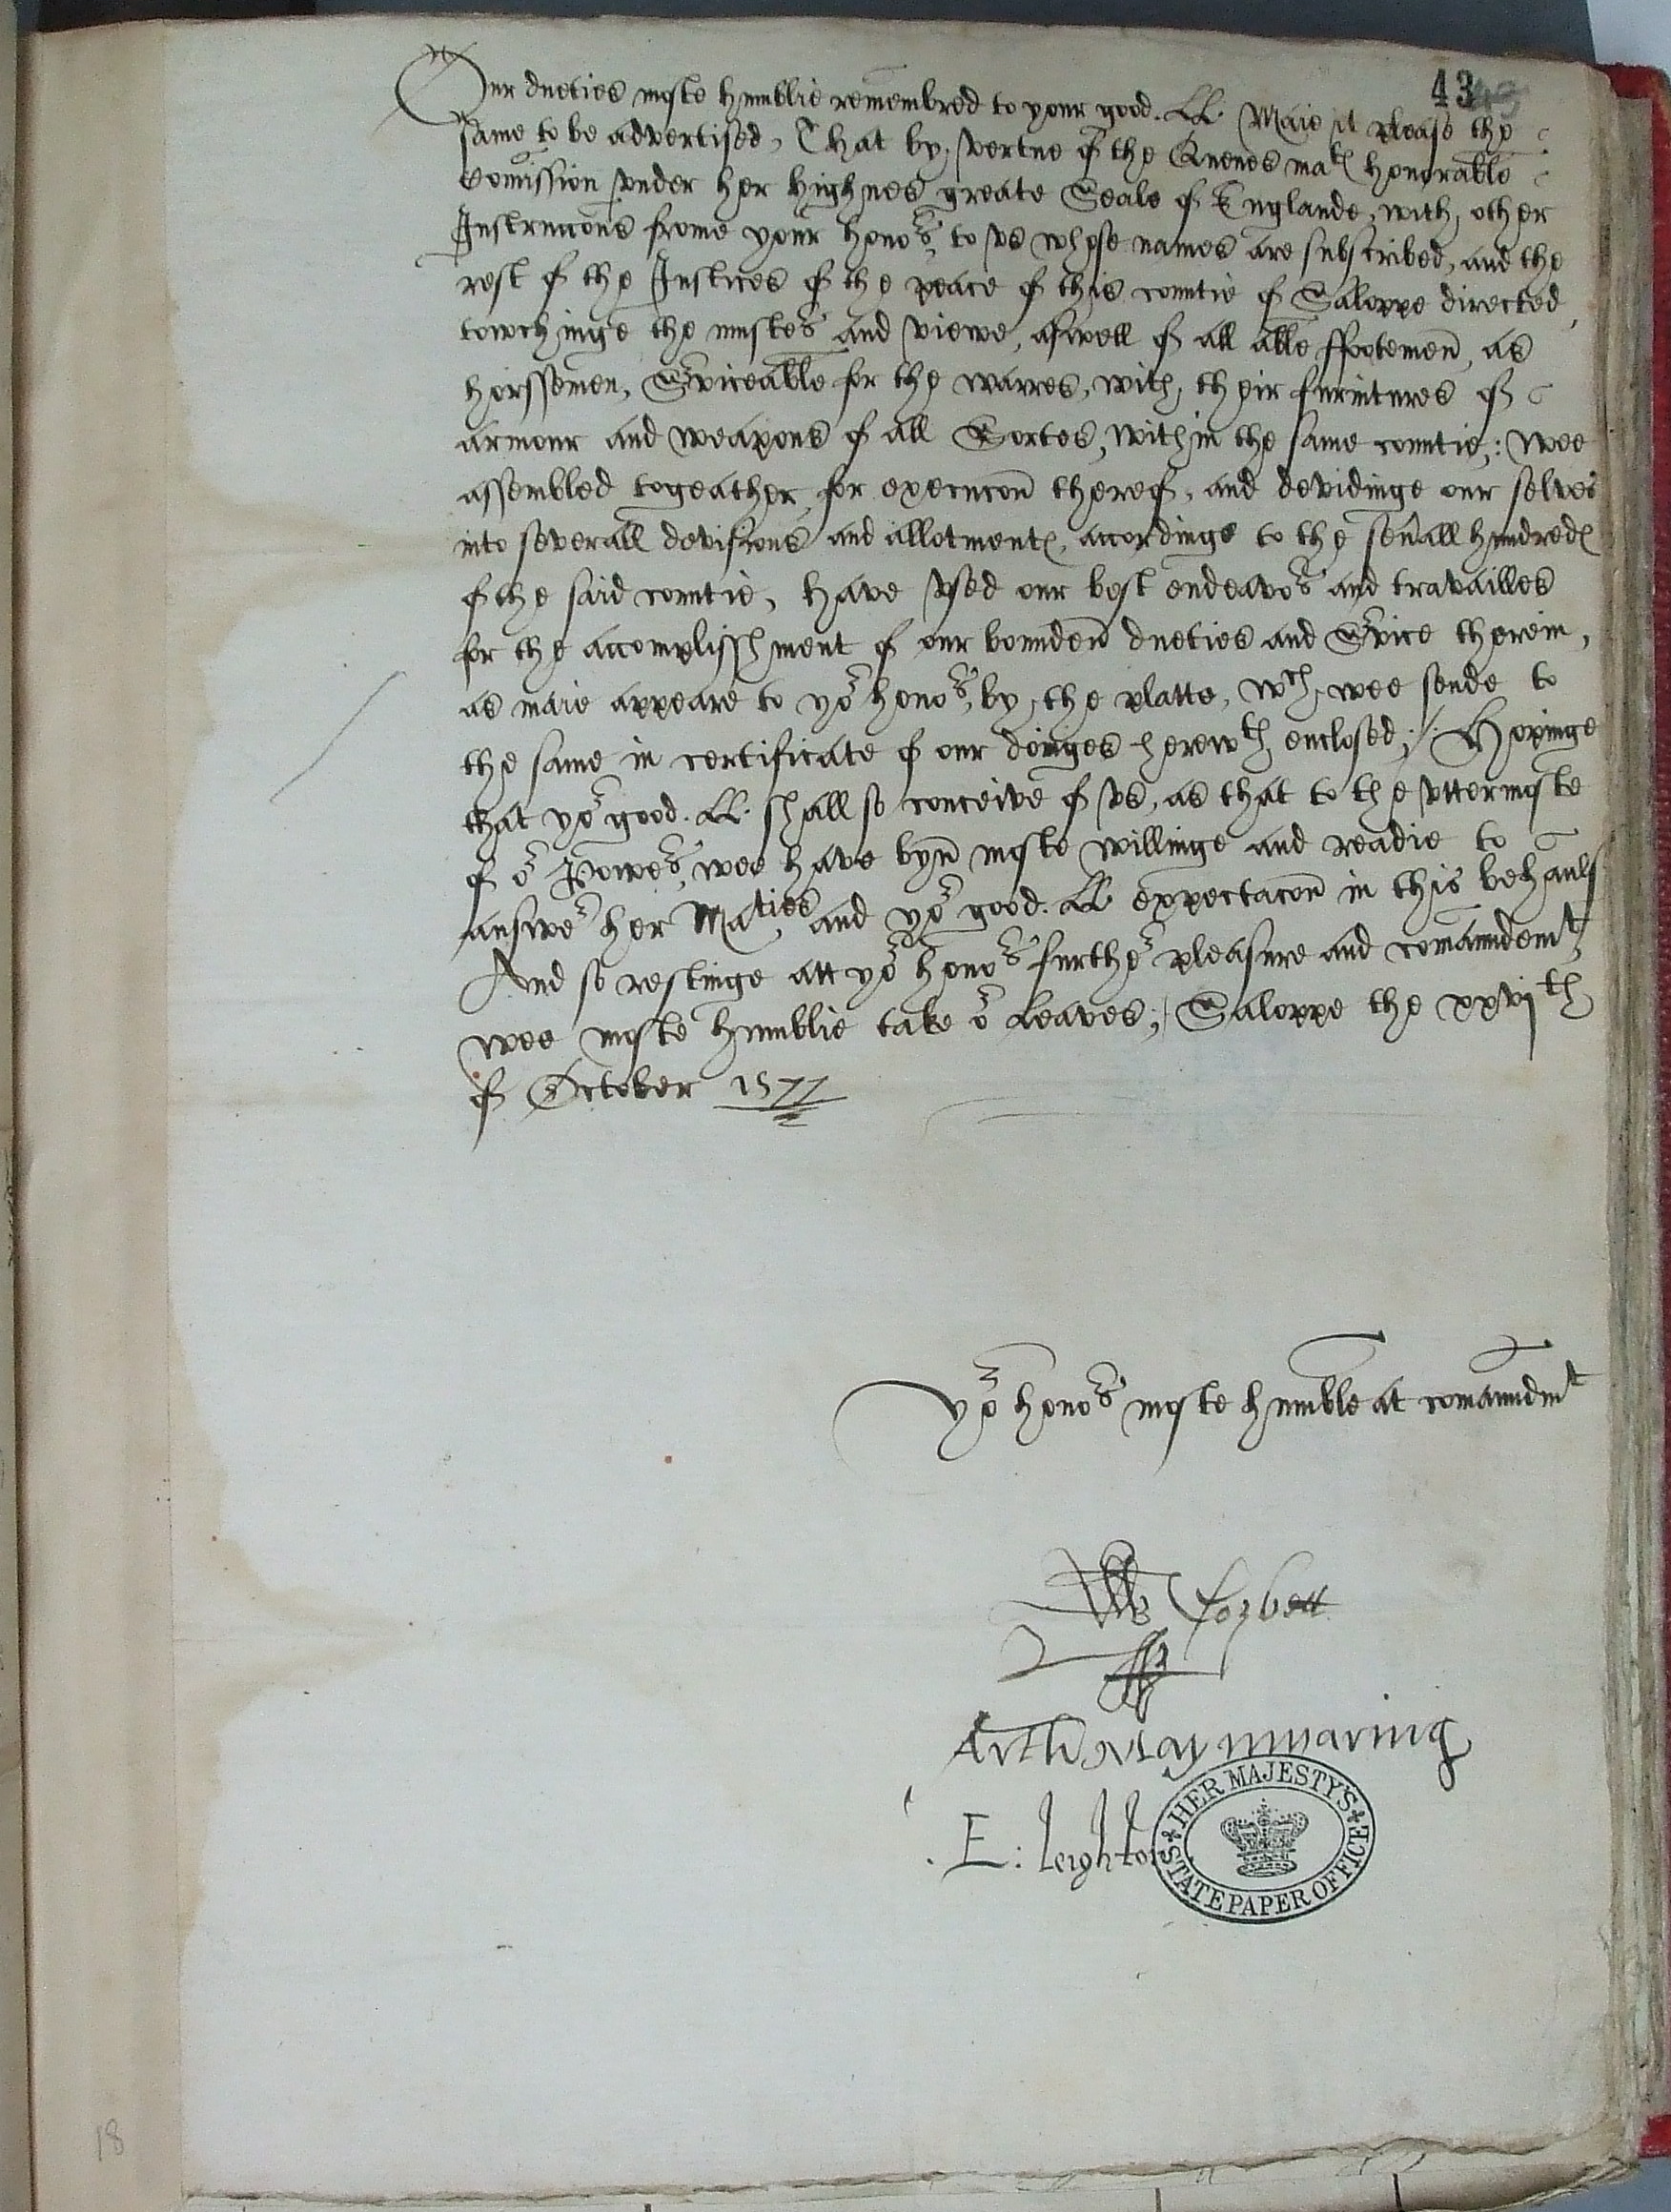 43
Our dueties moste humblie remembred to your good. LL. Maie it please the
same to be advertised, That by vertue of the Quenes mat honorable
Comission vnder her highnes greate Seale of Englande, with other
Instrucons frome your hono:rs, to vs whose names are subscribed, and the
rest of the Justices of the peace of this countie of Saloppe directed,
towchinge the musters and viewe, aswell of all able ffootemen, as
horssemen, Sviceable for the warres, with their furnitures of
armour and weapons of all Sortes, within the same countie,: wee
assembled togeather, for execucon thereof, and devidinge our selves
into severall devisions and allotmentes, accordinge to the seuall hundredes
of the said countie, have vsed our best endeavors and travailles
for the accomplisshment of our bounden dueties and Svice therein,
as maie appeare to yor honors, by the platte, wch wee sende to
the same in certificate of our doinges herewth enclosed; /: Hopinge
that yor good. LL. shall so conceive of vs, as that to the vttermoste
of or Powers, wee have byn moste willinge and readie to
answer her Maties and yor good. LL expectacon in this behaulf
And so restinge att yor honors further pleasure and comaundemt,
wee moste humblie take or Leaves; / Saloppe the xxvjth
of October 1577
Yor honors moste humble at comaundmt
Corbett
Arth Maynwaring
E: leighton
HER MAJESTY'S STATE PAPER OFFICE
18